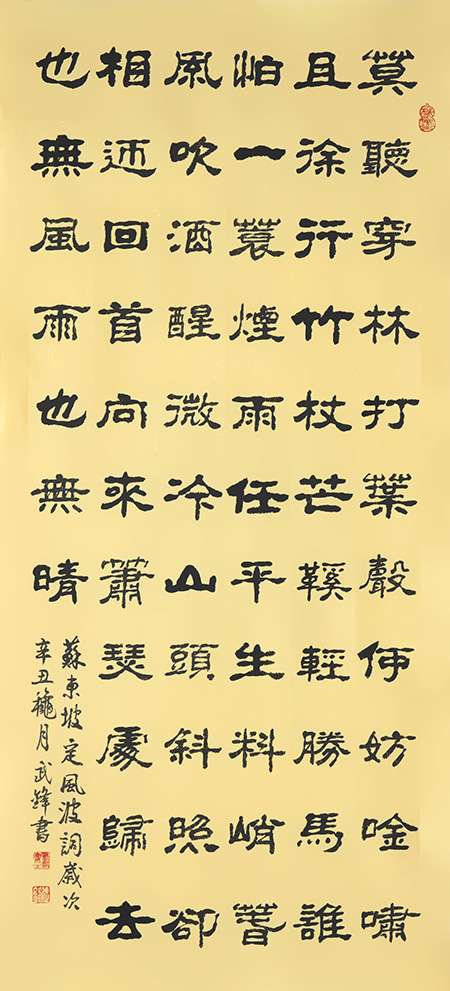 莫聽穿林打葉聲何妨唫嘯
且徐行竹杖芒鞵輕勝馬誰
怕一蓑煙雨任平生料峭萅
風吹酒醒微冷山頭斜照卻
相迎回首向來蕭瑟處歸去
也無風雨也無晴
蘇東坡定風波詞歲次
辛丑穐月武鋒書